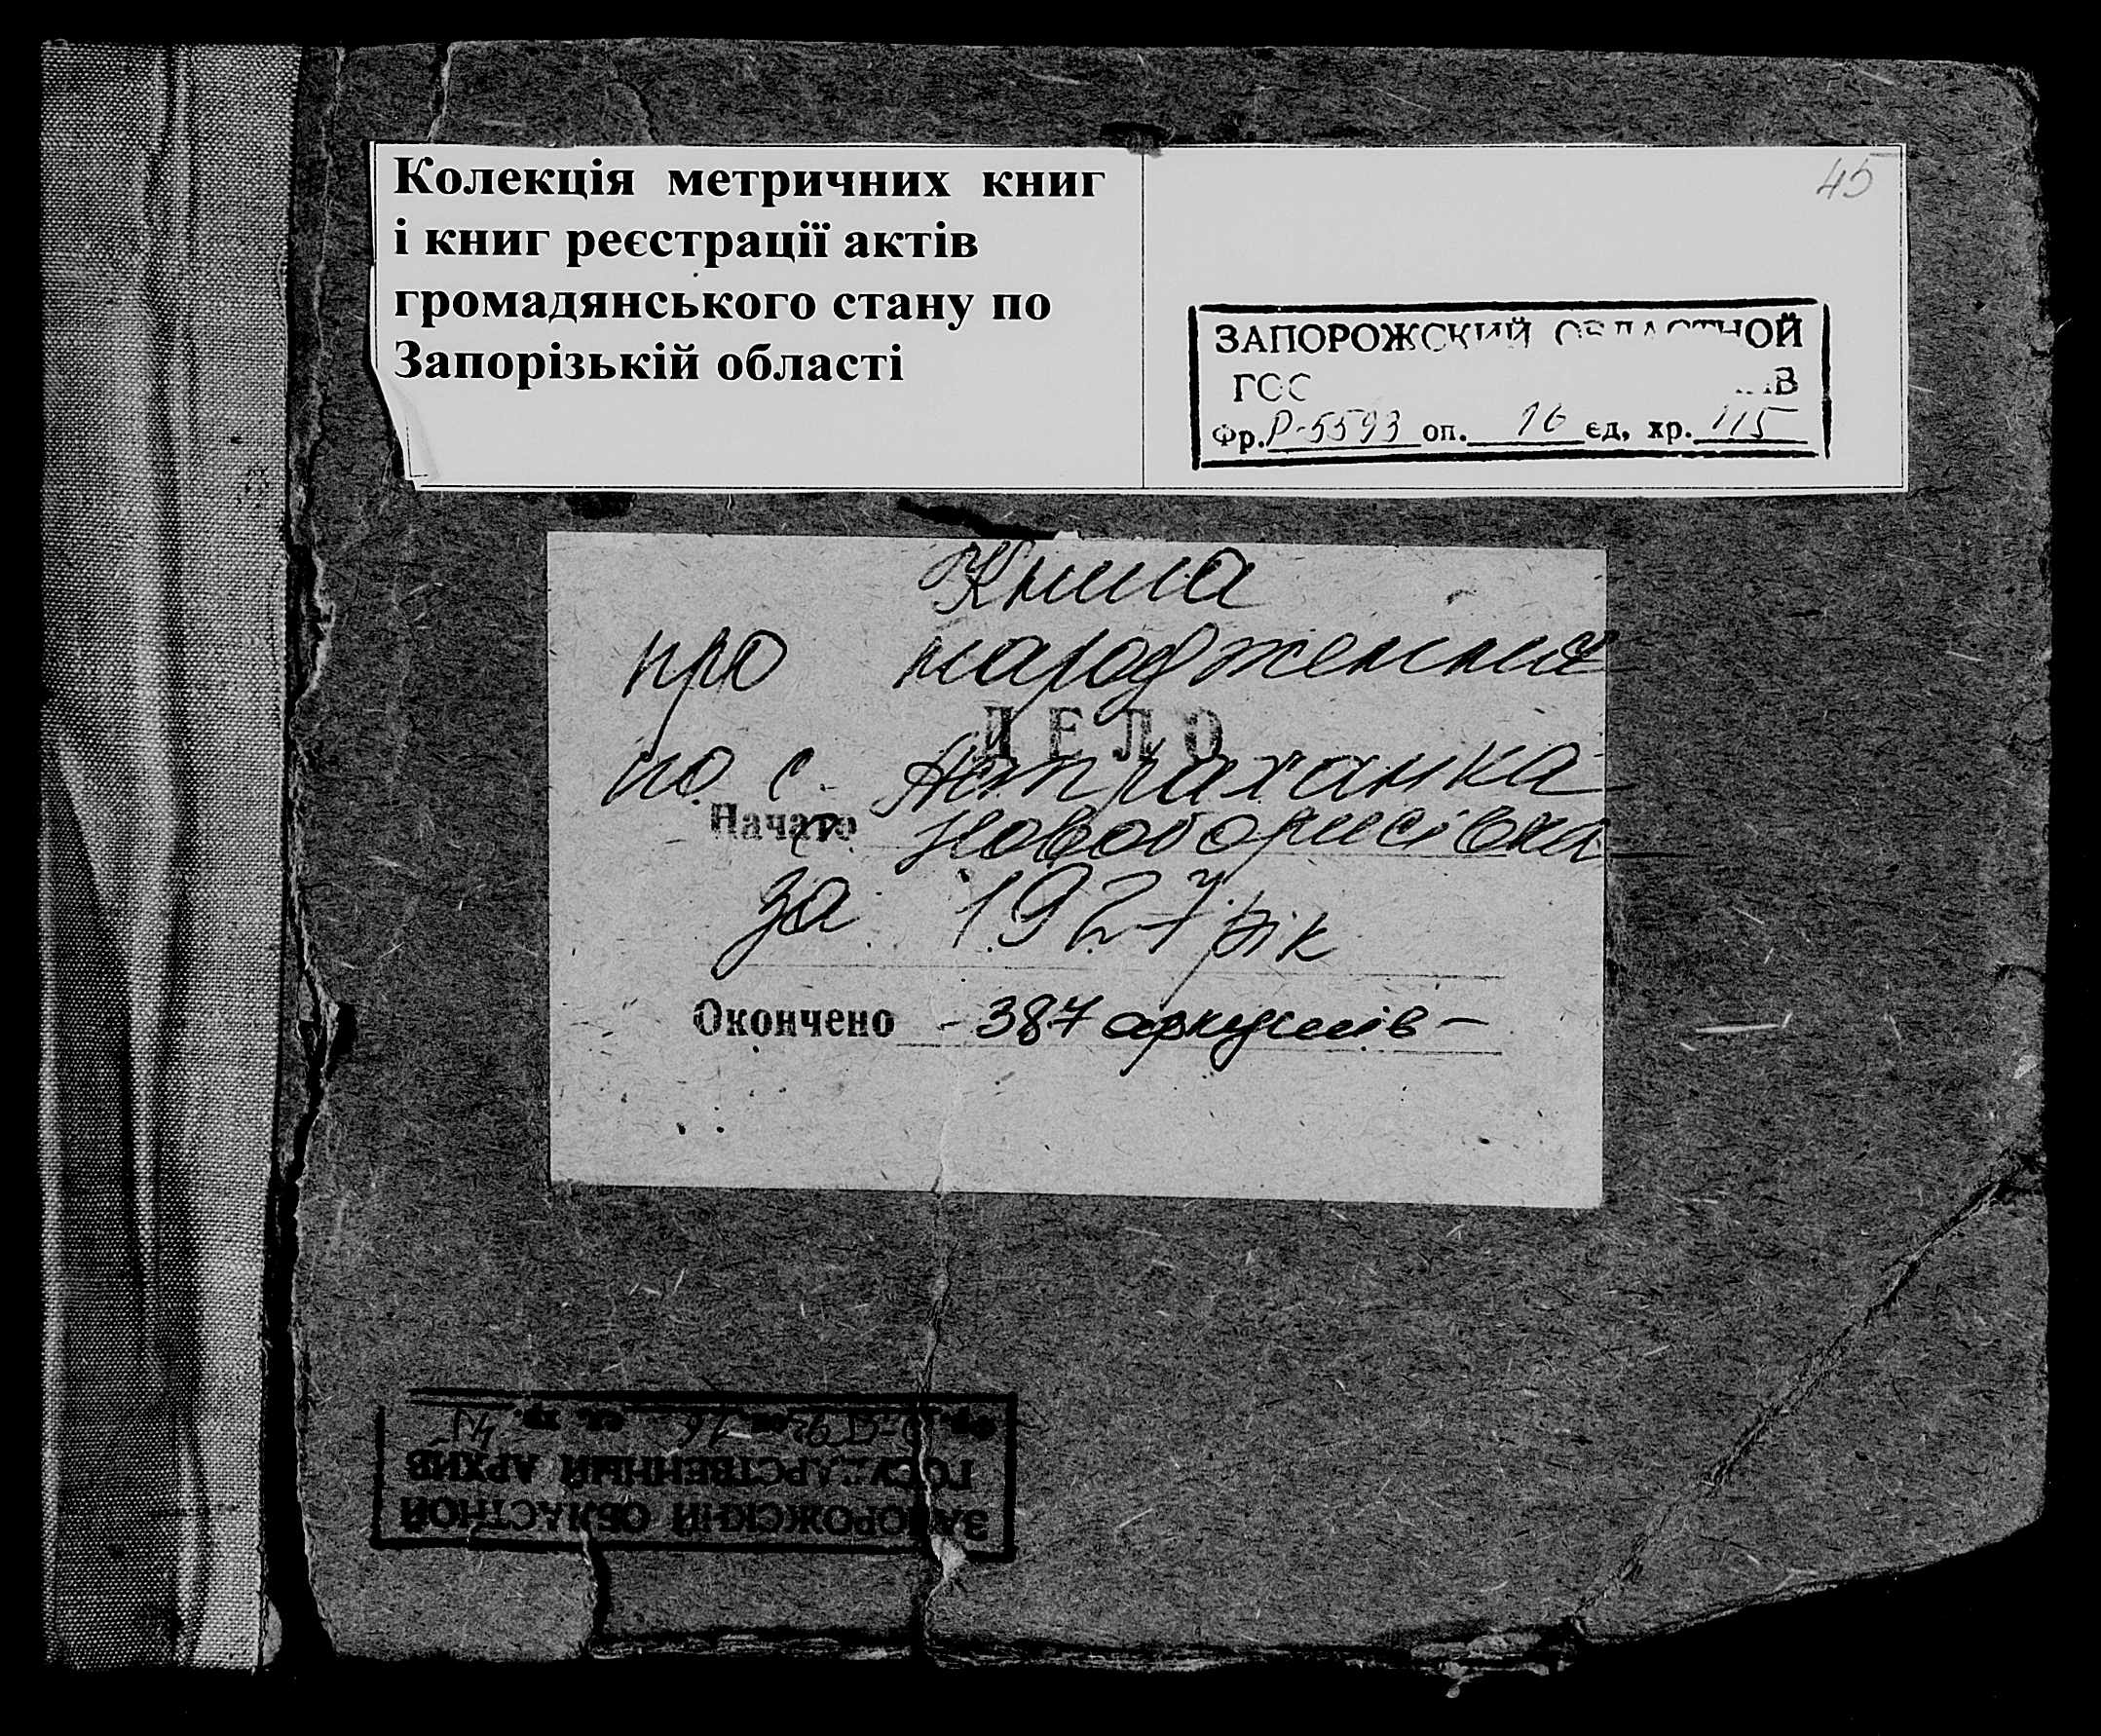 Колекція метричних книг
і книг реєстрації актів
громадянського стану по
Запорізькій області
45
ЗАПОРОЖСКИЙ ОБЛАСТНОЙ
ГОС ИВ
Фр. Р-5593 оп. 16 ед, хр. 115
Книга
про народження
ДЕЛО
по с. Астраханка
Начато
с. Новоборисівка
за 1927 рік
Окончено - 387 аркушів -
ЗАПОРОЖСКИЙ ОБЛАСТНОЙ
ГОСУДАРСТВЕННЫЙ АРХИВ